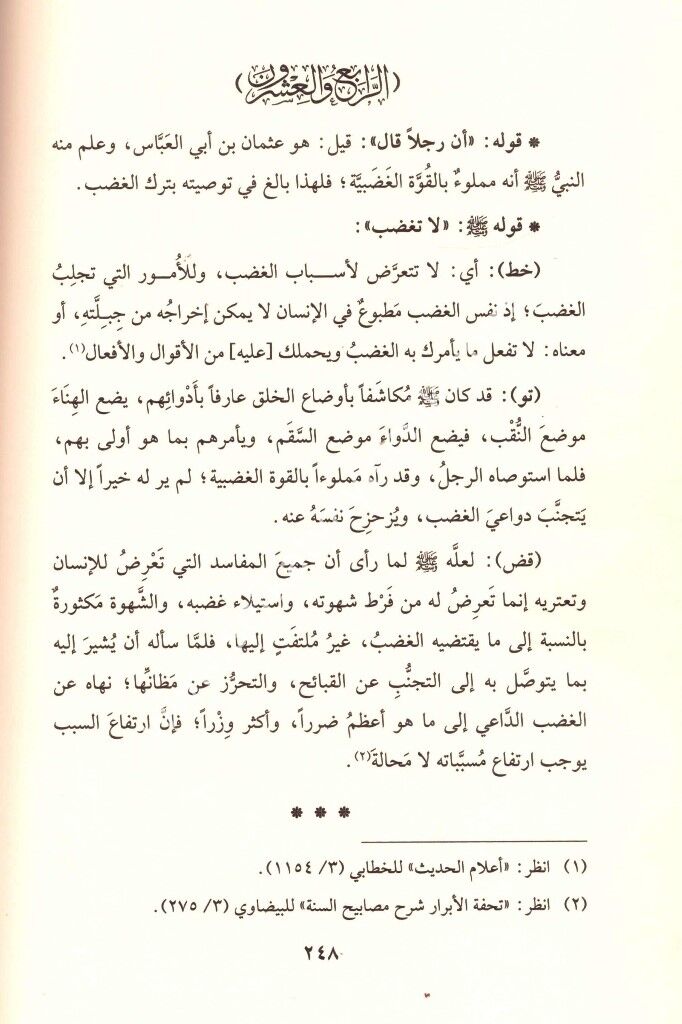 (الرابع والعشرون)
* قوله: «أن رجلاً قال»: قيل: هو عثمان بن أبي العَبَّاس، وعلم منه
النبيُّ ﷺ أنه مملوءٌ بالقُوَّة الغَضَبيَّة؛ فلهذا بالغ في توصيته بترك الغضب.
* قوله ﷺ: «لا تغضب»:
(خط): أي: لا تتعرَّض لأسباب الغضب، وللأُمور التي تجلِبُ
الغضبَ؛ إذ نفس الغضب مَطبوعٌ في الإنسان لا يمكن إخراجُه من جِبِلَّتهِ، أو
معناه: لا تفعل ما يأمرك به الغضبُ ويحملك [عليه] من الأقوال والأفعال(١).
(تو): قد كان ﷺ مُكاشَفاً بأوضاع الخلق عارفاً بأَدْوائِهم، يضع الهِنَاءَ
موضعَ النُّقْب، فيضع الدَّواءَ موضع السَّقَم، ويأمرهم بما هو أولى بهم،
فلما استوصاه الرجلُ، وقد رآه مَملوءاً بالقوة الغضبية؛ لم ير له خيراً إلا أن
يَتجنَّبَ دواعيَ الغضب، ويُزحزِحَ نفسَهُ عنه.
(قض): لعلَّه ﷺ لما رأى أن جميعَ المفاسد التي تَعْرِضُ للإنسان
وتعتريه إنما تَعرِضُ له من فَرْط شهوته، واستيلاء غضبه، والشَّهوة مَكثورةٌ
بالنسبة إلى ما يقتضيه الغضبُ، غيرُ مُلتفَتٍ إليها، فلمَّا سأله أن يُشيرَ إليه
بما يتوصَّل به إلى التجنُّبِ عن القبائح، والتحرُّز عن مَظانِّها؛ نهاه عن
الغضب الدَّاعي إلى ما هو أعظمُ ضرراً، وأكثر وِزْراً؛ فإنَّ ارتفاعَ السبب
يوجب ارتفاع مُسبَّباته لا مَحالةَ(٢).
* * *
(١) انظر: «أعلام الحديث» للخطابي (٣/ ١١٥٤).
(٢) انظر: «تحفة الأبرار شرح مصابيح السنة» للبيضاوي (٣/ ٢٧٥).
٢٤٨